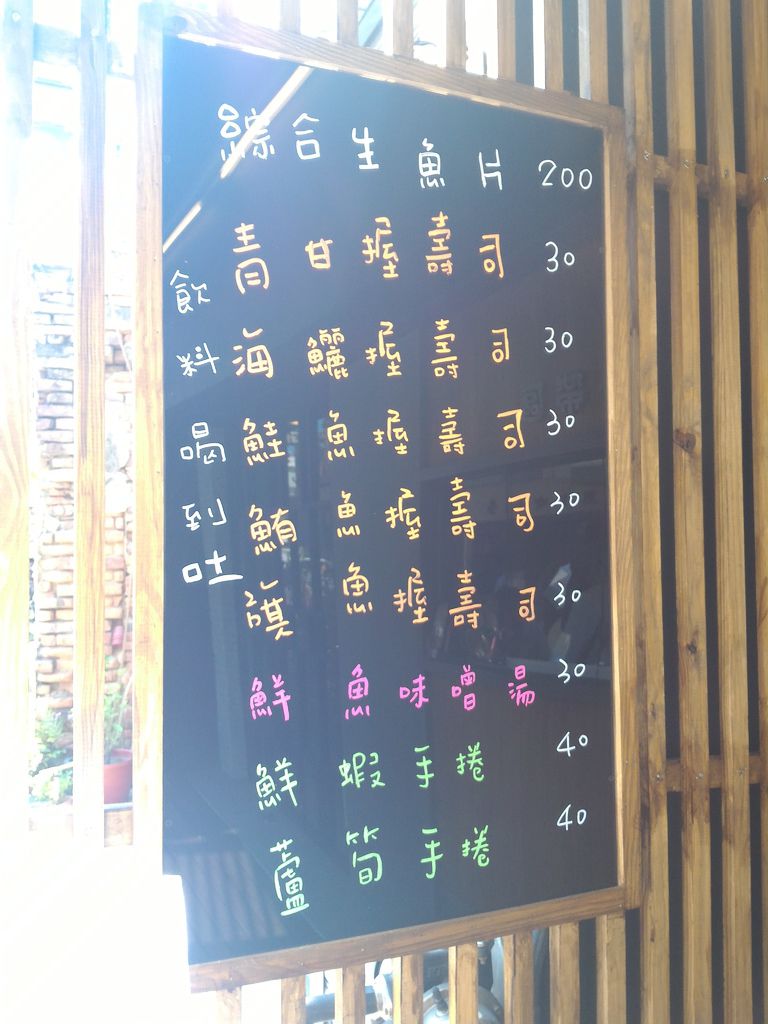 綜合生魚片 200
青甘握壽司 30
海鱺握壽司 30
鮭魚握壽司 30
鮪魚握壽司 30
旗魚握壽司 30
鮮魚味噌湯 30
鮮蝦手捲 40
蘆筍手捲 40
飲料喝到吐